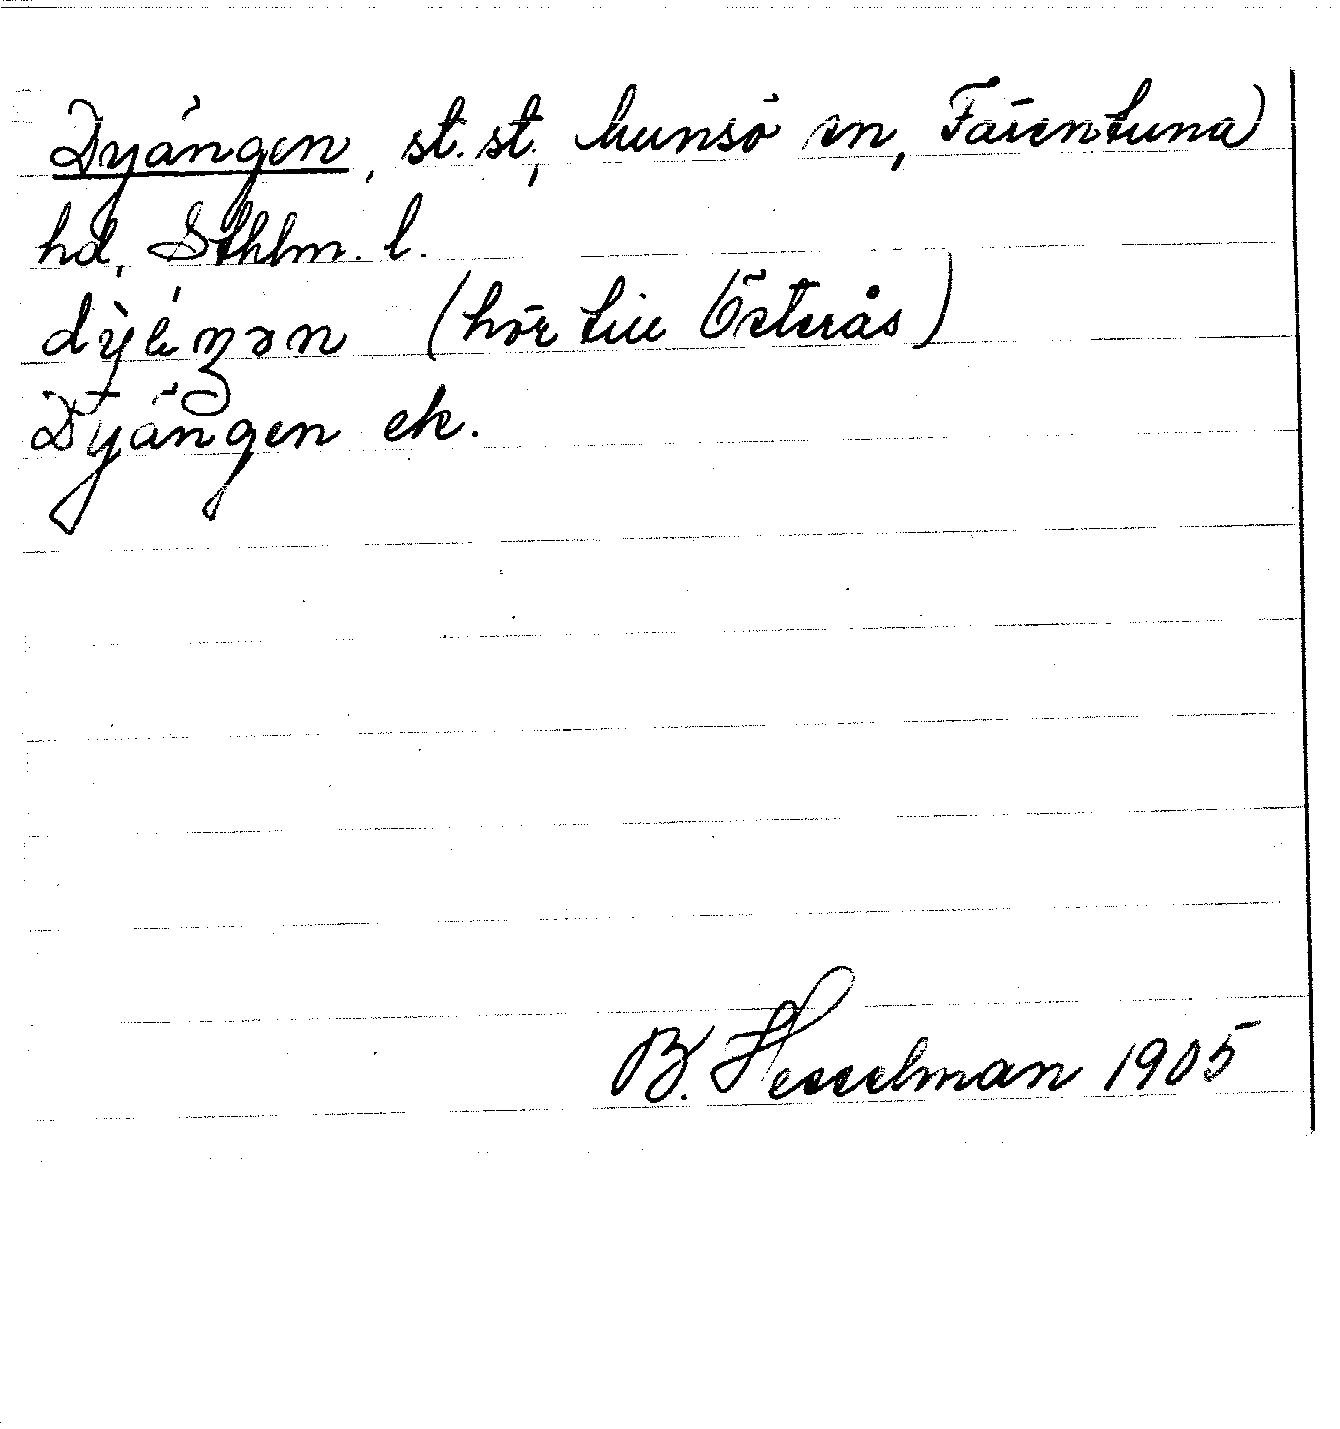 Dyängen, st.st., Munsö sn, Färentuna
hd, Sthlm. l.
(hör till Österås)
Dyängen ek.
B. Hesselman 1905